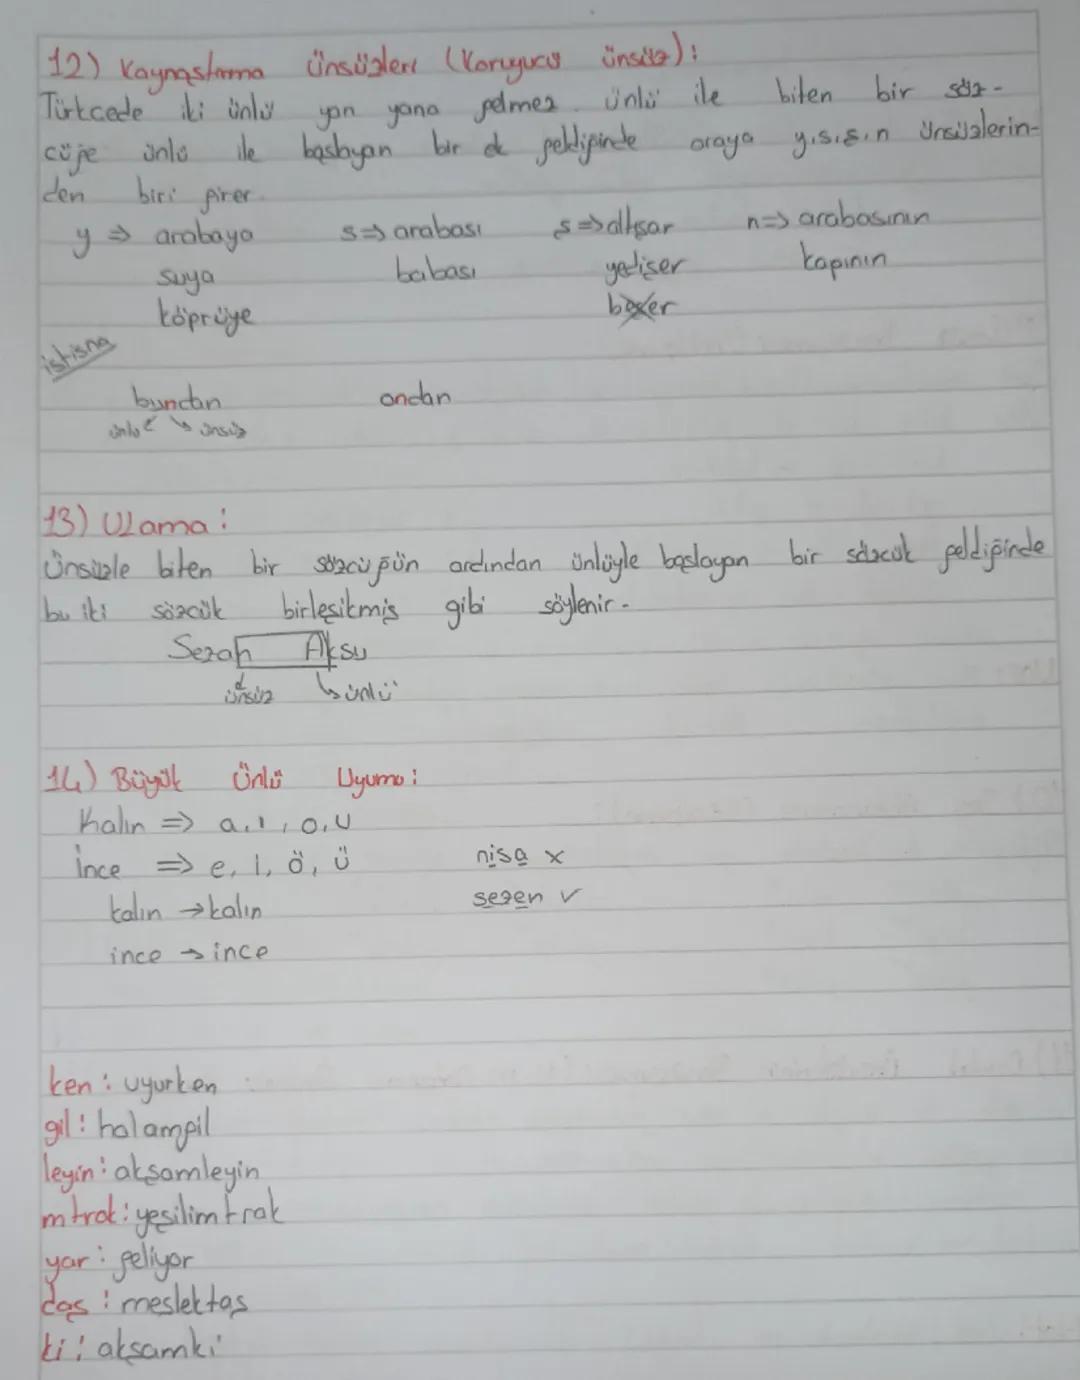 12) Kaynaştırma Ünsüzleri (Koruyucu ünsüz):
Türkcede iki ünlü yan yana gelmez. ünlü ile biten bir söz-
cüğe ünlü ile başlayan bir ek geldiğinde araya y,s,ş,n ünsüzlerin-
den biri girer.
y => arabaya s=> arabası ş=> altışar n=> arabasının
suya babası yedişer kapının
köprüye beşer
istisna
bundan ondan
ünlü ünsüz
13) Ulama:
Ünsüzle biten bir sözcüğün ardından ünlüyle başlayan bir sözcük geldiğinde
bu iki sözcük birleşikmiş gibi söylenir.
Sezan Aksu
ünsüz ünlü
14) Büyük Ünlü Uyumu:
Kalın => a, ı, o, u
İnce => e, i, ö, ü nisa x
kalın → kalın sezen ✓
ince → ince
ken: uyurken
gil: halamgil
leyin: akşamleyin
mtrak: yeşilimtrak
yor: geliyor
daş: meslektaş
ki: akşamki